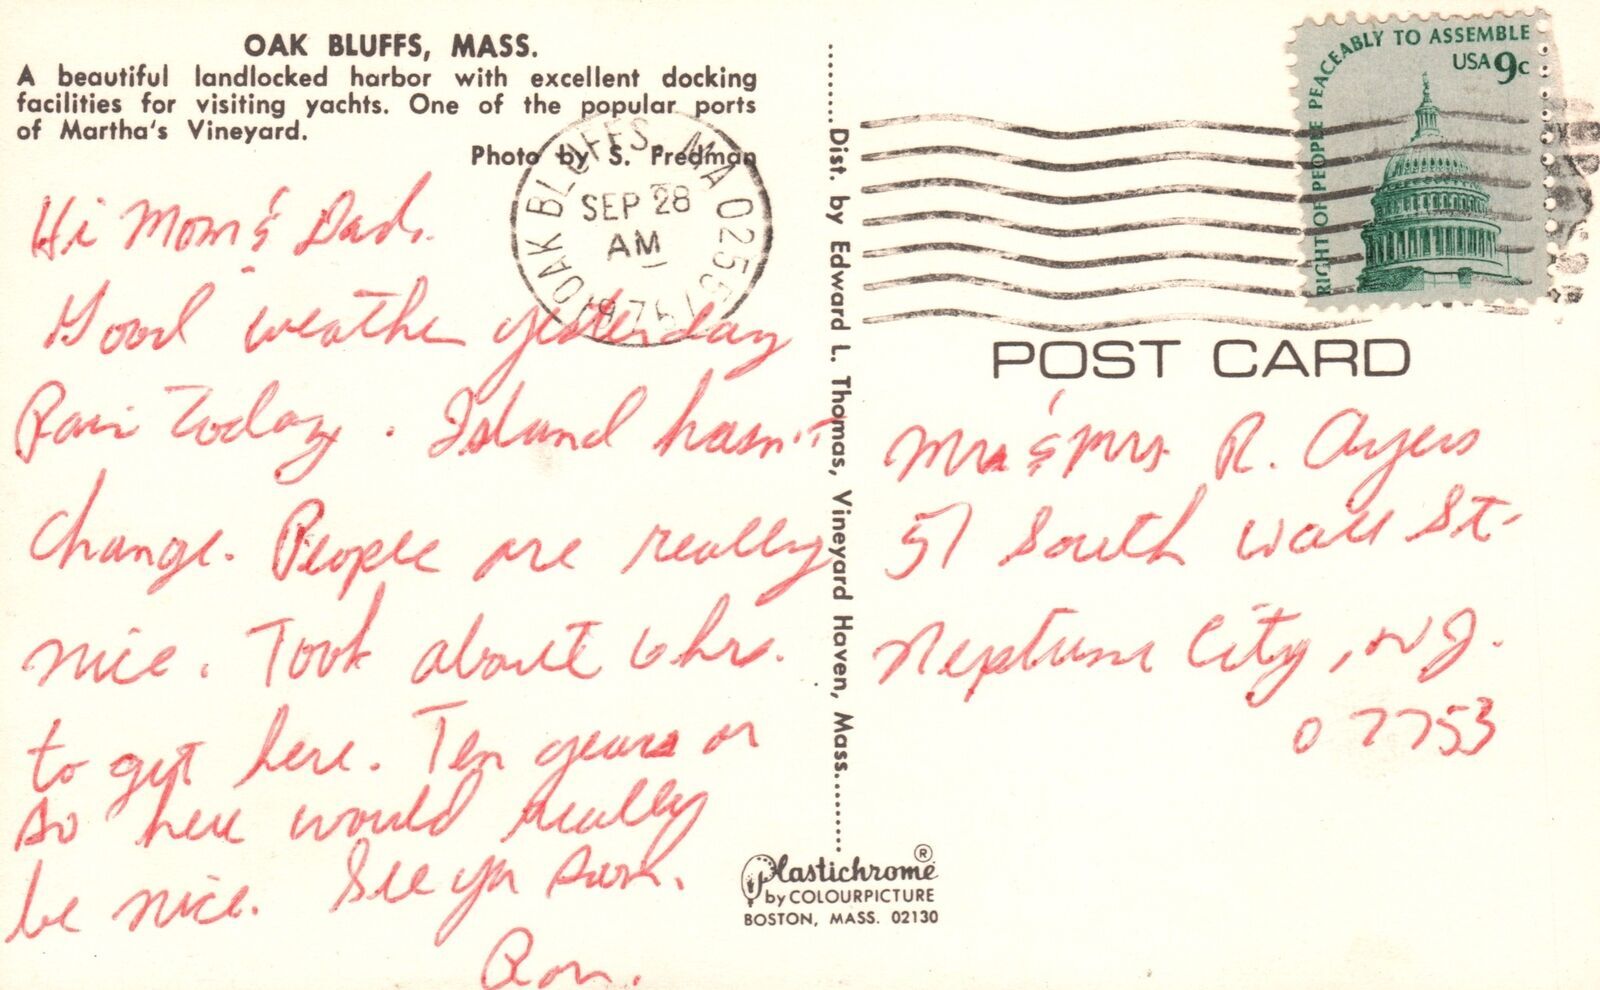 OAK BLUFFS, MASS.
A beautiful landlocked harbor with excellent docking
facilities for visiting yachts. One of the popular ports
of Martha's Vineyard.
Photo by S. Fredman
Hi Mom & Dad.
Good weather yesterday
Rain Today. Island hasn't
change. People are really
nice. Took about 6 hrs.
to get here. Ten years or
so here would really
be nice. See ya soon.
Ron.
OAK BLUFFS, MA 02557
SEP 28
AM
1976
Dist. by Edward L. Thomas, Vineyard Haven, Mass.
Plastichrome®
by COLOURPICTURE
BOSTON, MASS. 02130
RIGHT OF PEOPLE PEACEABLY TO ASSEMBLE
USA 9c
POST CARD
Mr & Mrs. R. Ayers
51 South Wall St.
Neptune City, N.J.
07753